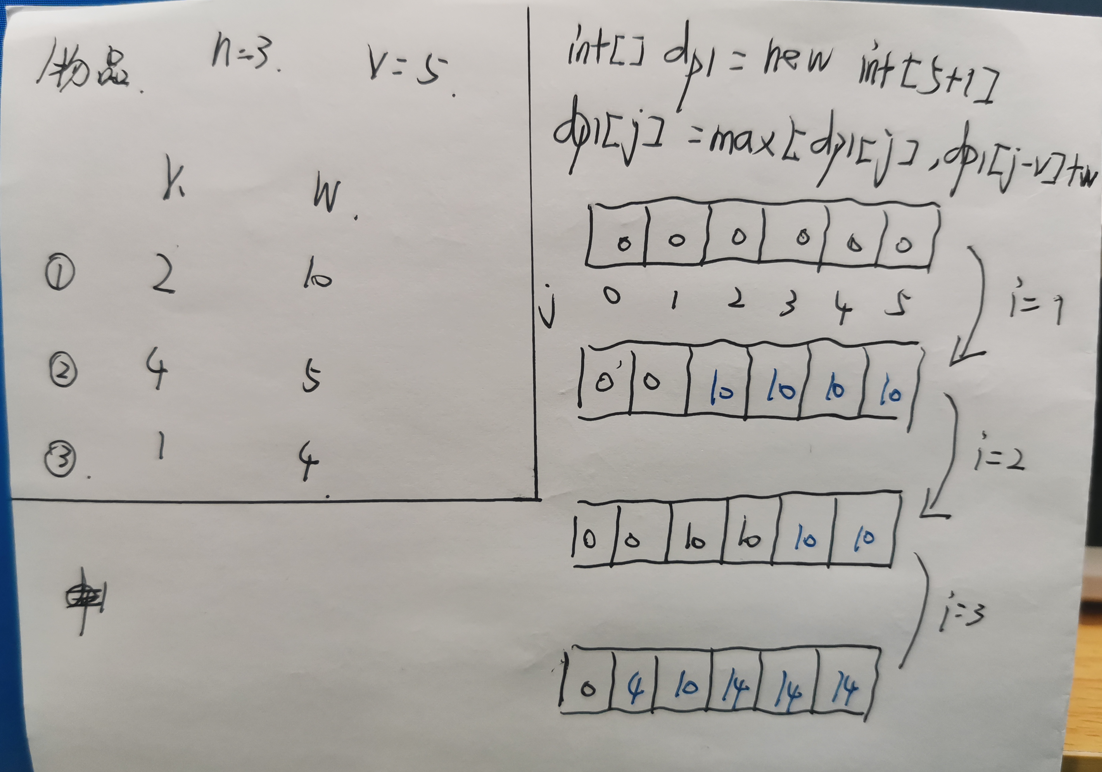 物品. n=3. V=5.
V. W.
① 2 10
② 4 5
③. 1 4.
int[] dp1 = new int[5+1]
dp1[j] = max[dp1[j], dp1[j-v]+w
0 0 0 0 0 0
j 0 1 2 3 4 5
i=1
0 0 10 10 10 10
i=2
0 0 10 10 10 10
i=3
0 4 10 14 14 14